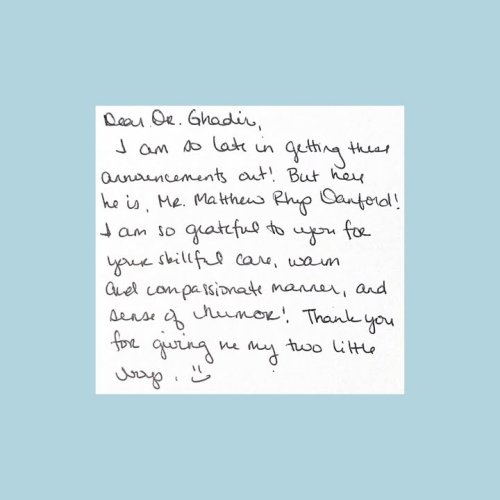 Dear Dr. Ghadir,
I am so late in getting these
announcements out! But here
he is, Mr. Matthew Rhys Danford!
I am so grateful to you for
your skillful care, warm
and compassionate manner, and
sense of humor! Thank you
for giving me my two little
boys. :)